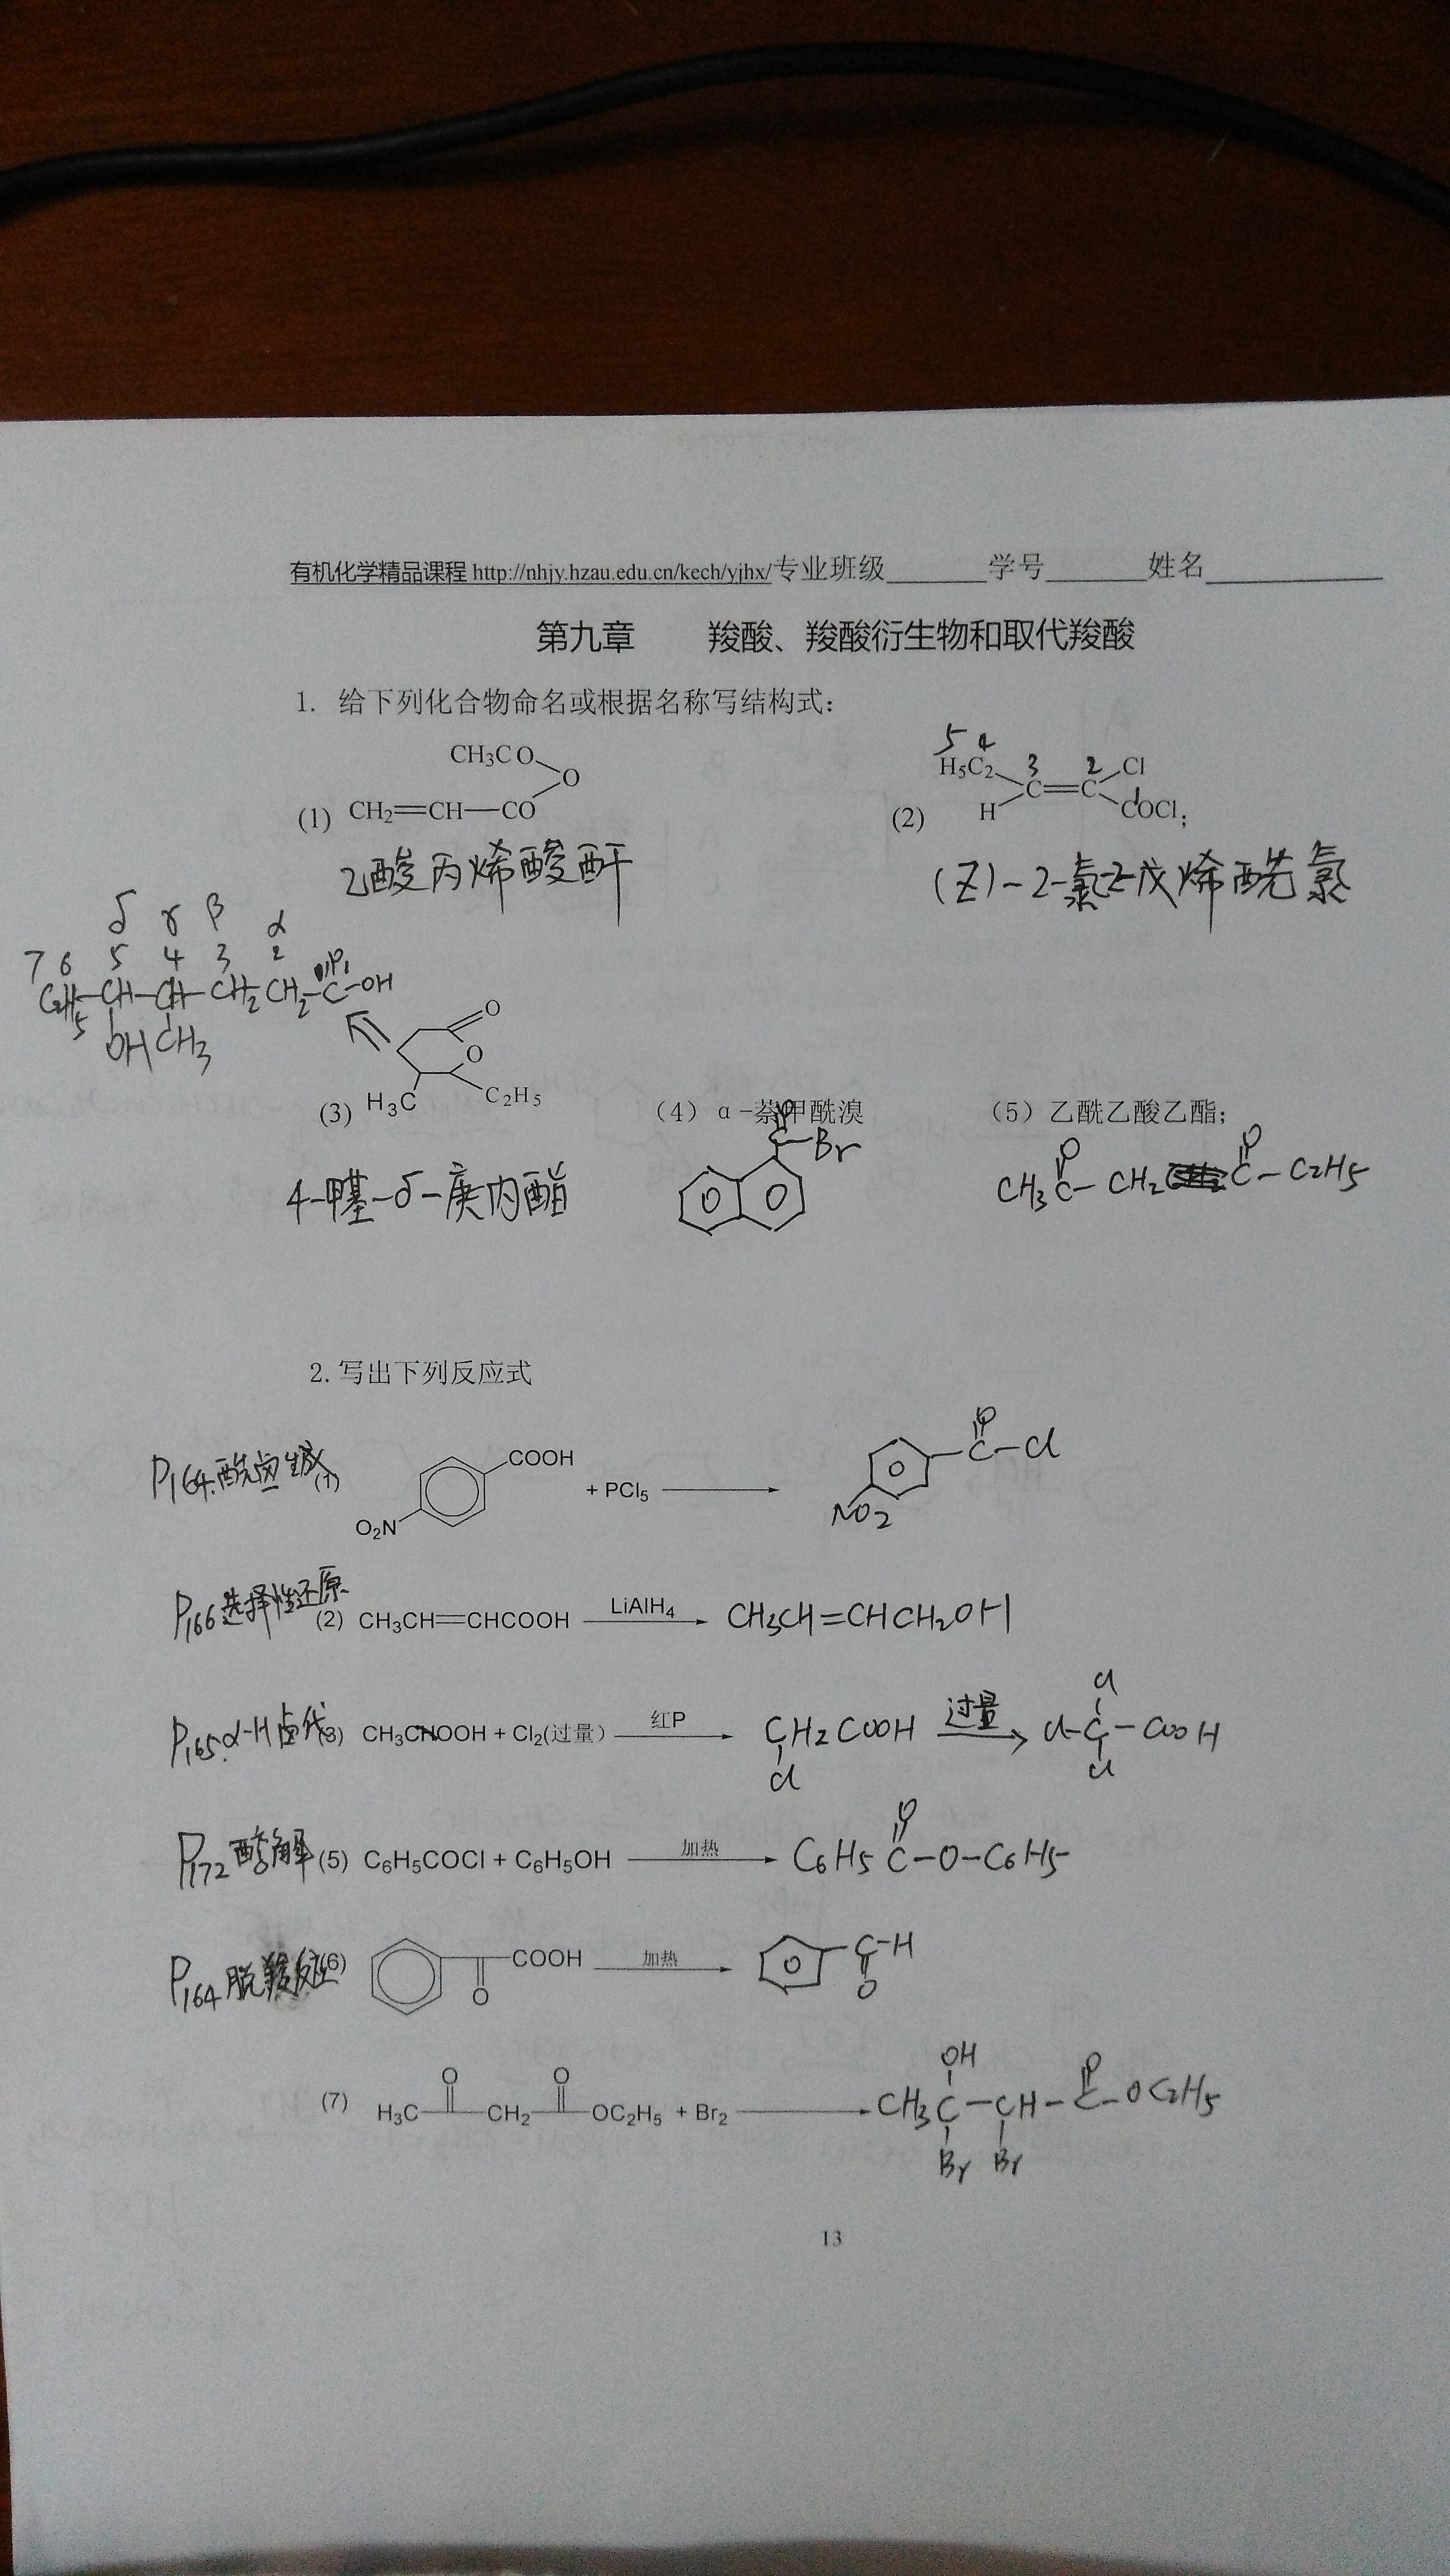 有机化学精品课程 http://nhjy.hzau.edu.cn/kech/yjhx/ 专业班级______学号______姓名__________
第九章 羧酸、羧酸衍生物和取代羧酸
1. 给下列化合物命名或根据名称写结构式:
CH3CO
O
(1) CH2=CH—CO
5 4
H5C2 3 2 Cl
C=C
(2) H COCl;
1
乙酸丙烯酸酐
(Z)-2-氯-2-戊烯酰氯
δ γ β α
7 6 5 4 3 2 1
C2H5-CH-CH-CH2CH2-C-OH
O
OH CH3
O
O
(3) H3C C2H5
(4) α-萘甲酰溴
(5) 乙酰乙酸乙酯;
4-甲基-δ-庚内酯
O
C-Br
O O
CH3C-CH2C-C2H5
2. 写出下列反应式
P164.酰卤生成
(1) COOH
O2N
+ PCl5
O
C-Cl
NO2
P166选择性还原
(2) CH3CH=CHCOOH LiAlH4 CH3CH=CHCH2OH
P165.α-H卤代
(3) CH3COOH + Cl2(过量) 红P CH2COOH 过量 Cl-C-COOH
Cl Cl Cl
P172醇解 (5) C6H5COCl + C6H5OH 加热 C6H5C-O-C6H5
O
P164脱羧反应 (6) COOH 加热 C-H
O O
(7) H3C O CH2 O OC2H5 + Br2 CH3C-CH-C-OC2H5
OH O
Br Br
13